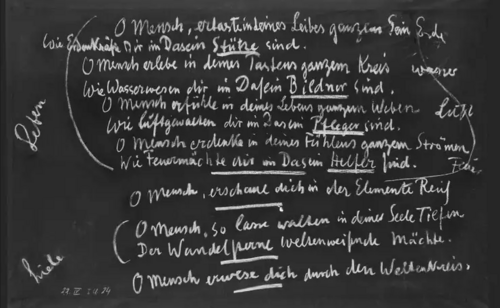 O Mensch, ertaste in deines Leibes ganzem Sein Erde
Wie Erdenkräfte dir im Dasein Stütze sind.
O Mensch erlebe in deines Tastens ganzem Kreis wasser
Wie Wasserwesen dir im Dasein Bildner sind.
O Mensch erfühle in deines Lebens ganzem Weben Luft
Wie Luftgewalten dir im Dasein Pfleger sind.
O Mensch erdenke in deines Fühlens ganzem Strömen
Wie Feuermächte dir im Dasein Helfer sind. Feuer
Leben
O Mensch, erschaue dich in der Elemente Reich
O Mensch, so lasse walten in deiner Seele Tiefen
Der Wandelsterne weltenweisende Mächte.
Liebe
O Mensch erwese dich durch den Weltenkreis.